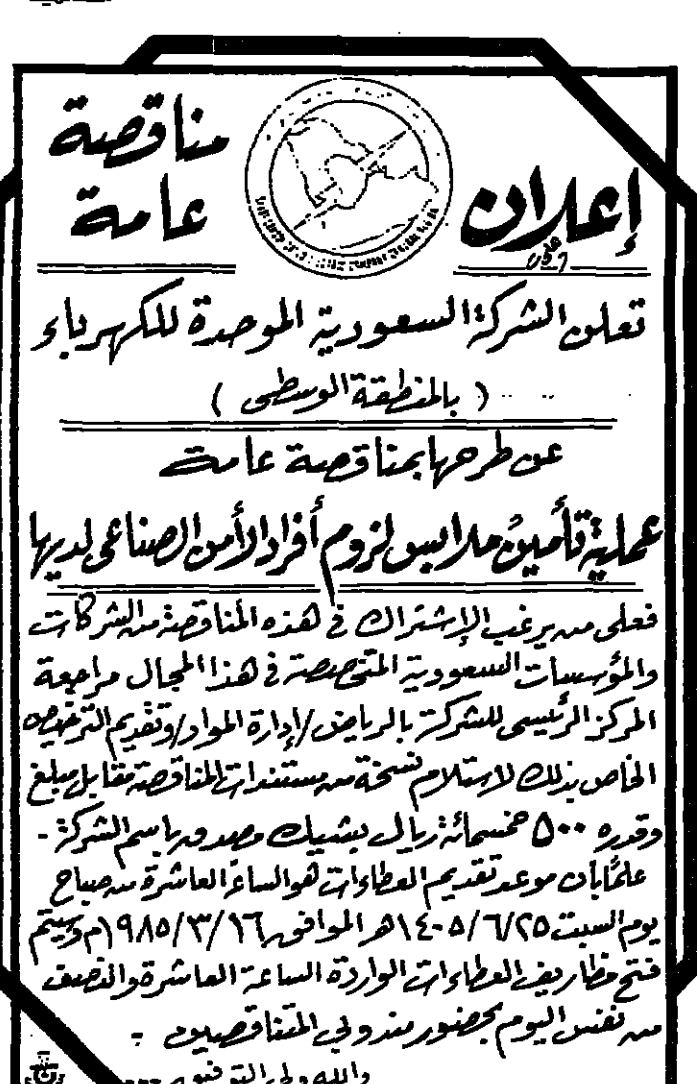 إعلان
مناقصة
عامة
تعلن الشركة السعودية الموحدة للكهرباء
( بالمنطقة الوسطى )
عن طرحها بمناقصة عامة
عملية تأمين ملابس لزوم أفراد الأمن الصناعى لديها
فعلى من يرغب الإشتراك في هذه المناقصة من الشركات
والمؤسسات السعودية المتخصصة في هذا المجال مراجعة
المركز الرئيسى للشركة بالرياض/إدارة المواد/وتقديم الترخيص
الخاص بذلك لاستلام نسخة من مستندات المناقصة مقابل مبلغ
وقدره ٥٠٠ خمسمائة ريال بشيك مصدق باسم الشركة -
علمًا بأن موعد تقديم العطاءات هو الساعة العاشرة من صباح
يوم السبت ١٤٠٥/٦/٢٥هـ الموافق ١٩٨٥/٣/١٦م وسيتم
فتح مظاريف العطاءات الواردة الساعة العاشرة والنصف
من نفس اليوم بحضور مندوبي المتناقصين -
والله ولي التوفيق